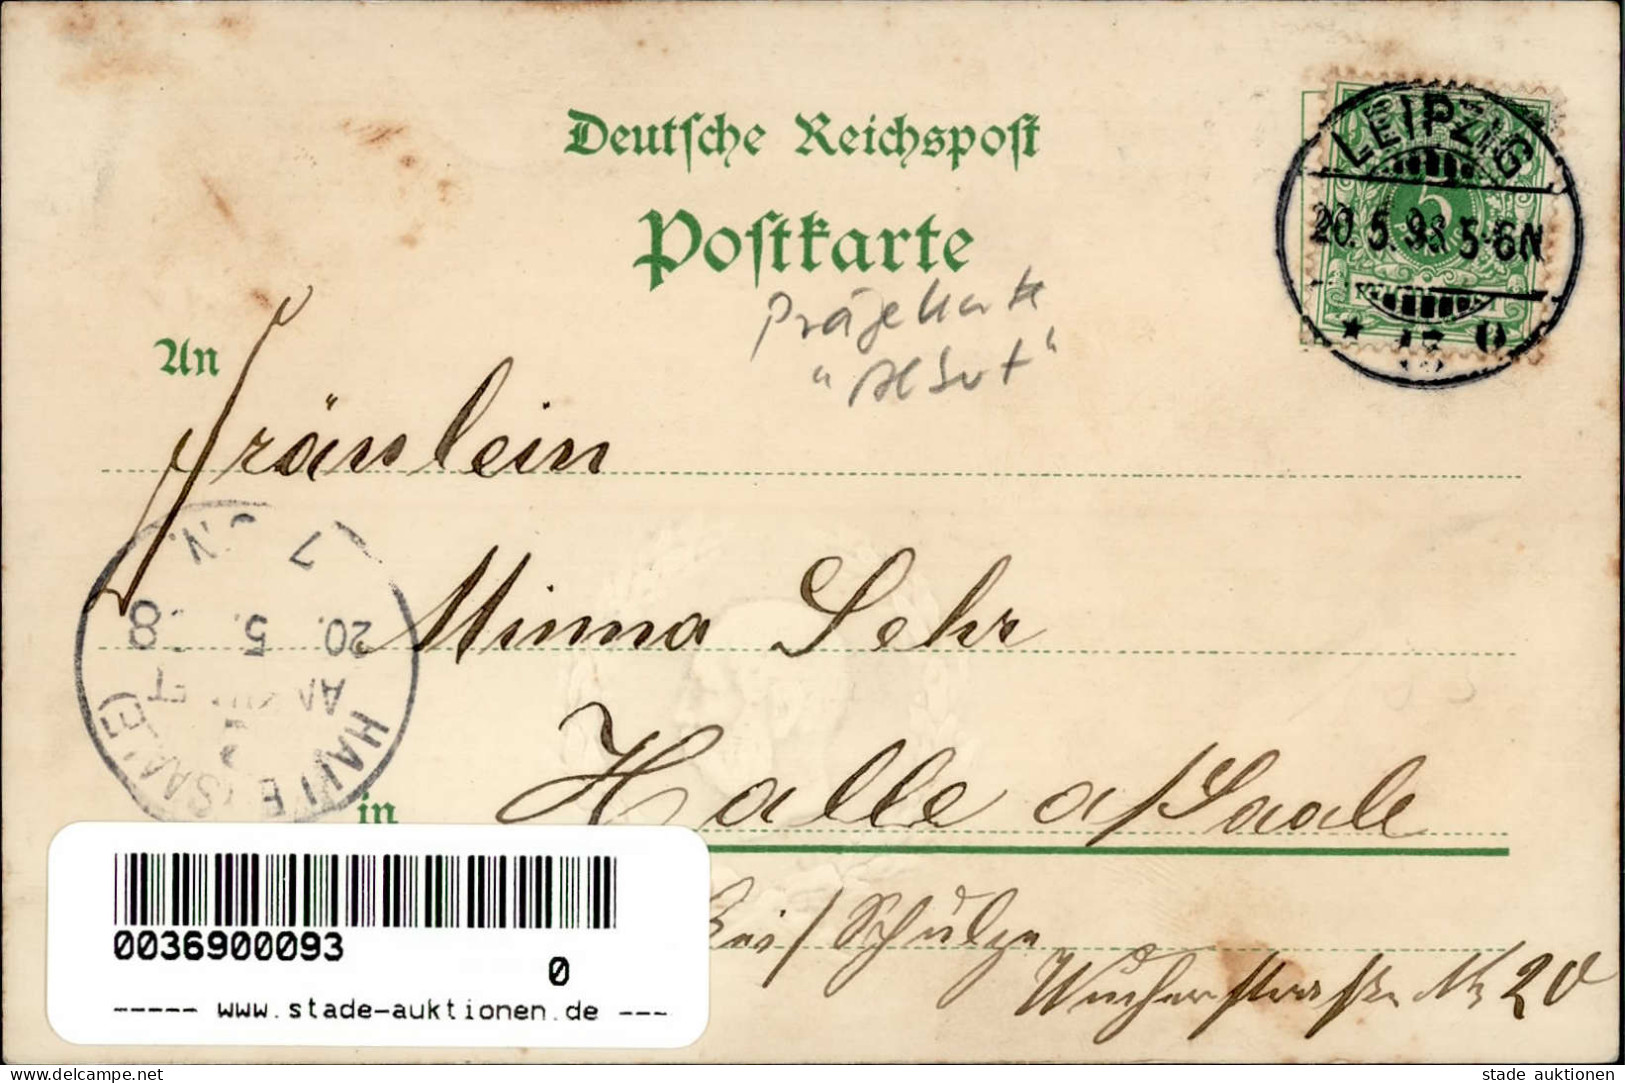 Deutsche Reichspost
Postkarte
LEIPZIG
20.5.98 5-6N
* 13 0
Prägekarte
"Albert"
An
Fräulein
7 N.
20. 5. 8
HALLE (SAALE)
Minna Lehr
in Halle a/Saale
bei/Schulze
Wucherstraße No 20
0036900093
0
----- www.stade-auktionen.de ---
stade auktionen